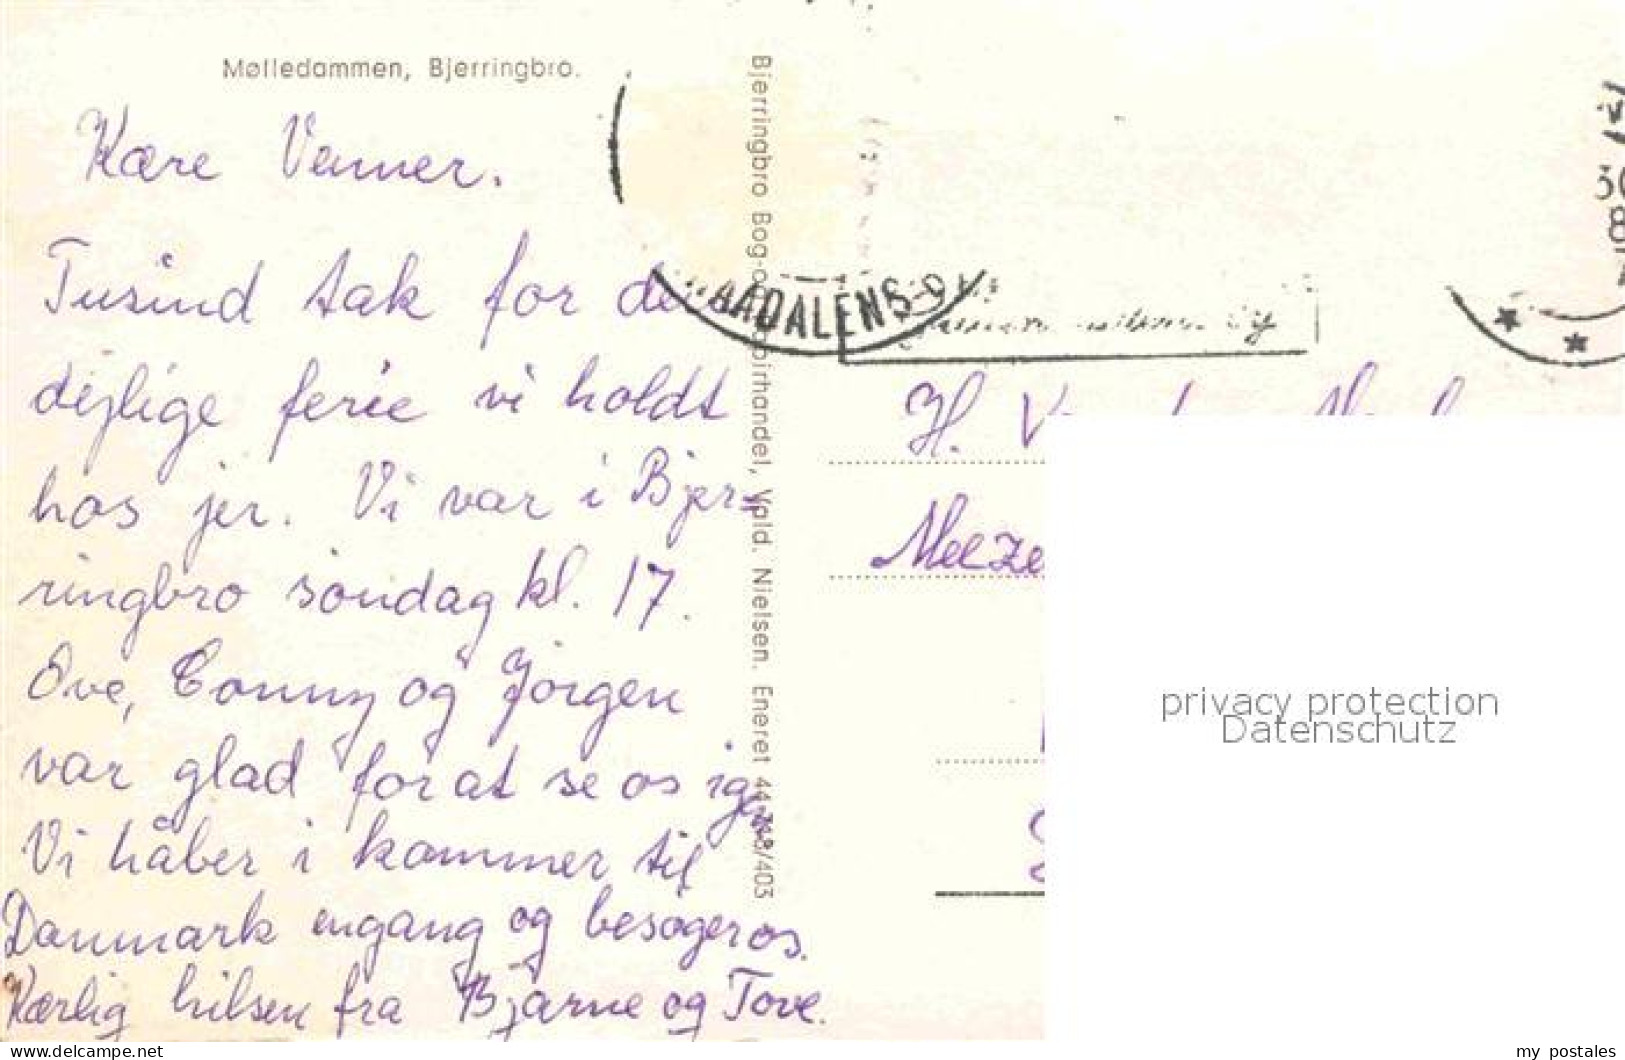 Mølledammen, Bjerringbro.
Kære Venner.
Tusind tak for den
dejlige ferie vi holdt
hos jer. Vi var i Bjer=
ringbro søndag kl. 17.
Ove, Conny og Jørgen
var glad for at se os igen.
Vi håber i kommer til
Danmark engang og besøger os.
Kærlig hilsen fra Bjarne og Tove.
Bjerringbro Bog- og Papirhandel, Vald. Nielsen. Eneret 44318/403
AADALENS
30
8
H.
privacy protection
Datenschutz
www.delcampe.net
my_postales